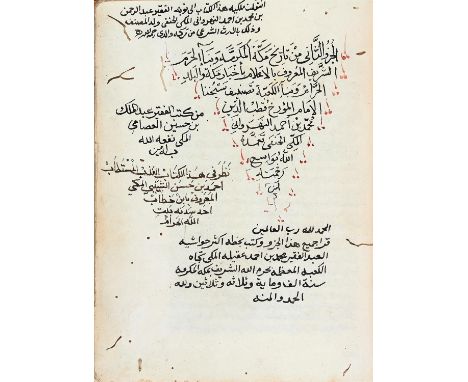 انتقلت ملكية هذا الكتاب الى نوبة الفقير عبد الرحمن
بن محمد بن احمد النهروالي المكي الحنفي ولد المصنف
وذلك بالارث الشرعي من
الجزء الثاني من تاريخ مكة المكرمة وبناء الحرم
الشريف المعروف بالاعلام باخبار مكة والبلد
الحرام وبناء الكعبة تصنيف شيخنا
الامام المورخ قطب الدين
محمد بن احمد النهروالي
المكي الحنفي تغمده
الله بواسع
رحمته
امين
من كتب الفقير عبد الملك
بن حسين العصامي
المكي نفعه الله
به امين
نظر في هذا الكتاب المستطاب
احمد بن حسن المكي
المعروف بابن خطاب
احد سدنة بيت
الله الحرام
الحمد لله رب العالمين
قرا جميع هذا الجزو وكتب بخطه اكثر حواشيه
العبد الفقير محمد بن احمد عقيله المكي تجاه
الكعبة المعظمة بحرم الله الشريف بمكة المكرمه
سنة الف وماية وثلاثه وثلاثين ولله
الحمد والمنه